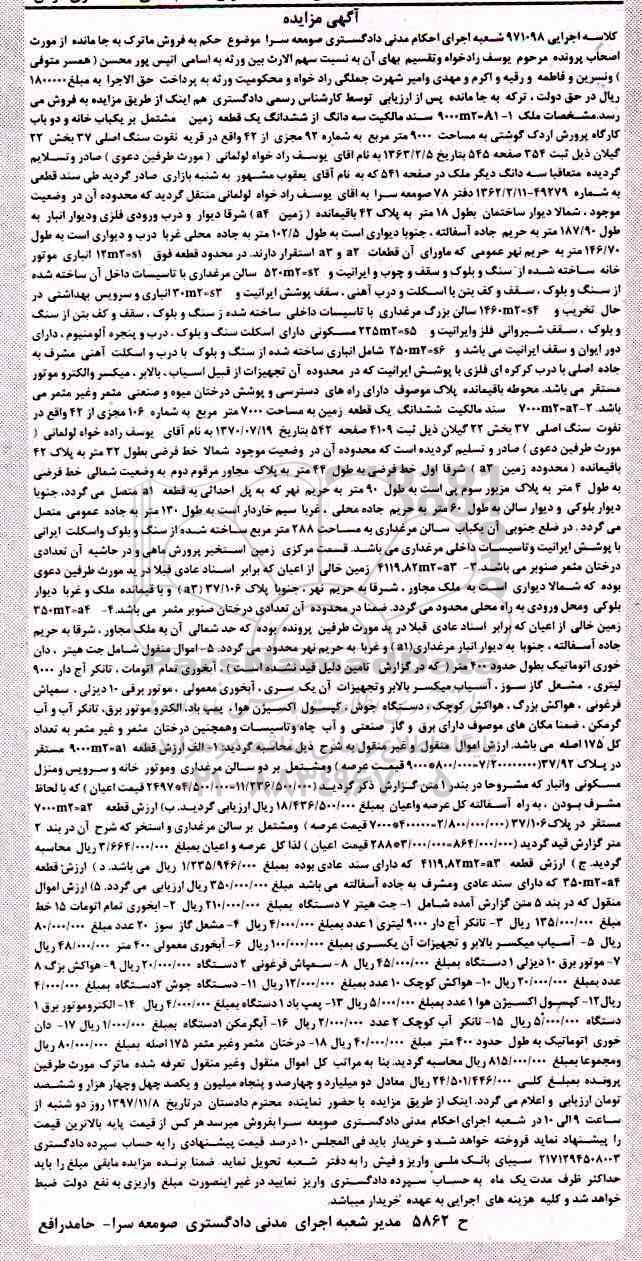 آگهی مزایده
کلاسه اجرایی ۹۷۱۰۹۸ شعبه اجرای احکام مدنی دادگستری صومعه سرا موضوع حکم به فروش ماترک به جا مانده از مورث
اصحاب پرونده مرحوم یوسف رادخواه وتقسیم بهای آن به نسبت سهم الارث بین ورثه به اسامی انیس پور محسن ( همسر متوفی
) ونسرین و فاطمه و رقیه و اکرم و مهدی وامیر شهرت جملگی راد خواه و محکومیت ورثه به پرداخت حق الاجرا به مبلغ ۱۸۰۰۰۰۰
ریال در حق دولت ، ترکه به جا مانده پس از ارزیابی توسط کارشناس رسمی دادگستری هم اینک از طریق مزایده به فروش می
رسد.مشخصات ملک ۱- ۹۰۰۰m2=a1 سند مالکیت سه دانگ از ششدانگ یک قطعه زمین مشتمل بر یکباب خانه و دو باب
کارگاه پرورش اردک گوشتی به مساحت ۹۰۰۰ متر مربع به شماره ۹۲ مجزی از ۴۲ واقع در قریه نفوت سنگ اصلی ۳۷ بخش ۲۲
گیلان ذیل ثبت ۳۵۴ صفحه ۵۴۵ بتاریخ ۱۳۶۳/۲/۵ به نام آقای یوسف راد خواه لولمانی ( مورث طرفین دعوی ) صادر و تسلایم
گردیده متعاقبا سه دانگ دیگر ملک در صفحه ۵۴۱ که به نام آقای یعقوب مشهور به شنبه بازاری صادر گردید طی سند قطعی
به شماره ۴۹۲۷۹-۱۳۶۲/۲/۱۱ دفتر ۷۸ صومعه سرا به اقای یوسف راد خواه لولمانی منتقل گردید که محدوده آن در وضعیت
موجود ، شمالا دیوار ساختمان بطول ۱۸ متر به پلاک ۴۲ باقیمانده ( زمین a۴ ) شرقا دیوار و درب ورودی فلزی ودیوار انبار به
طول ۱۸۷/۹۰ متر به حریم جاده آسفالته ، جنوبا دیواری است به طول ۱۰۲/۵ متر به جاده محلی غربا درب و دیواری است به طول
۱۴۶/۷۰ متر به حریم نهر عمومی که ماورای آن قطعات a۲ و a۳ استقرار دارند. در محدود قطعه فوق ۱۲m2=s1 انباری موتور
خانه ساخته شده از سنگ و بلوک و سقف و چوب و ایرانیت و ۵۲۰m2=s2 سالن مرغداری با تاسیسات داخل آن ساخته شده
از سنگ و بلوک ، سقف و کف بتن با اسکلت و درب آهنی ، سقف پوشش ایرانیت و ۳۰m2=s3 انباری و سرویس بهداشتی در
حال تخریب و ۱۴۶۰m2=s4 سالن بزرگ مرغداری با تاسیسات داخلی ساخته شده ز سنگ و بلوک ، سقف و کف بتن از سنگ
و بلوک ، سقف شیروانی فلز وایرانیت و ۲۲۵m2=s5 مسکونی دارای اسکلت سنگ و بلوک ، درب و پنجره آلومنیوم ، دارای
دور ایوان و سقف ایرانیت می باشد و ۲۵۰m2=s6 شامل انباری ساخته شده از سنگ و بلوک با درب و اسکلت آهنی مشرف به
جاده اصلی با درب کرکره ای فلزی با پوشش ایرانیت که در محدوده آن تجهیزات از قبیل اسیاب ، بالابر ، میکسر والکترو موتور
مستقر می باشد. محوطه باقیمانده پلاک موصوف دارای راه های دسترسی و پوشش درختان میوه و صنعتی مثمر وغیر مثمر می
باشد. ۲-۷۰۰۰m2=a2 سند مالکیت ششدانگ یک قطعه زمین به مساحت ۷۰۰۰ متر مربع به شماره ۱۰۶ مجزی از ۴۲ واقع در
نفوت سنگ اصلی ۳۷ بخش ۲۲ گیلان ذیل ثبت ۴۱۰۹ صفحه ۵۴۲ بتاریخ ۱۳۷۰/۰۷/۱۹ به نام آقای یوسف راده خواه لولمانی (
مورث طرفین دعوی ) صادر و تسلیم گردیده است که محدوده آن در وضعیت موجود شمالا خط فرضی بطول ۳۲ متر به پلاک ۴۲
باقیمانده ( محدوده زمین a۳ ) شرقا اول خط فرضی به طول ۴۴ متر به پلاک مجاور مرقوم دوم به وضعیت شمالی خط فرضی
به طول ۴ متر به پلاک مزبور سوم پی است به طول ۹۰ متر به حریم نهر که به پل احداثی به قطعه a۱ متصل می گردد، جنوبا
دیوار بلوکی و دیوار سالن به طول ۶۰ متر به حریم جاده محلی ، غربا سیم خاردار است به طول ۱۳۰ متر به جاده عمومی متصل
می گردد . در ضلع جنوبی آن یکباب سالن مرغداری به مساحت ۲۸۸ متر مربع ساخته شده از سنگ و بلوک واسکلت ایرانی
با پوشش ایرانیت وتاسیسات داخلی مرغداری می باشد. قسمت مرکزی زمین استخر پرورش ماهی و در حاشیه آن تعدادی
درختان مثمر صنوبر می باشد. ۳- ۴۱۱۹,۸۲m2=a3 زمین خالی از اعیان که برابر اسناد عادی قبلا در ید مورث طرفین دعوی
بوده که شمالا دیواری است به ملک مجاور ، شرقا به حریم نهر ، جنوبا پلاک ۳۷/۱۰۶ (a۳) و یا قیمانده ملک و غربا دیوار
بلوکی ومحل ورودی به راه محلی محدود می گردد. ضمنا در محدوده آن تعدادی درختان صنوبر مثمر می باشد.۴- ۳۵۰m2=a4
زمین خالی از اعیان که برابر اسناد عادی قبلا در ید مورث طرفین پرونده بوده که حد شمالی آن به ملک مجاور ، شرقا به حریم
جاده آسفالته ، جنوبا به دیوار انبار مرغداری(a۱) و غربا به حریم نهر محدود می گردد. ۵- اموال منقول شامل جت هیتر ، دان
خوری اتوماتیک بطول حدود ۴۰۰ متر ( که در گزارش تامین دلیل قید نشده است ) ، آبخوری تمام اتومات ، تانکر آج دار ۹۰۰۰
لیتری ، مشعل گاز سوز ، آسیاب میکسر بالابر وتجهیزات آن یک سری ، آبخوری معمولی ، موتور برقی ۱۰ دیزلی ، سمپاش
فرغونی ، هواکش بزرگ ، هواکش کوچک ، دستگاه جوش ، کپسول اکسیژن هوا ، پمپ باد، الکترو موتور برق، تانکر آب و آب
گرمکن ، ضمنا مکان های موصوف دارای برق و گاز صنعتی و آب چاه وتاسیسات وهمچنین درختان مثمر و غیر مثمر به تعداد
کل ۱۷۵ اصله می باشد. ارزش اموال منقول و غیر منقول به شرح ذیل محاسبه گردید: ۱- الف ارزش قطعه ۹۰۰۰m2=a1 مستقر
در پلاک ۳۷/۹۲(۷/۲۰۰۰۰۰۰۰۰=۸۰۰/۰۰۰*۹۰۰۰ قیمت عرصه ) ومشتمل بر دو سالن مرغداری وموتور خانه و سرویس ومنزل
مسکونی وانبار که مشروحا در بندر ۱ متن گزارش ذکر گردید (۱۱/۲۳۶/۵۰۰/۰۰۰=۴/۵۰۰/۰۰۰*۲۴۹۷ قیمت اعیان ) که با لحاظ
مشرف بودن ، به راه آسفالته کل عرصه واعیان بمبلغ ۱۸/۴۳۶/۵۰۰/۰۰۰ ریال ارزیابی گردید. ب) ارزش قطعه ۷۰۰۰m2=a2
مستقر در پلاک۳۷/۱۰۶ (۲/۸۰۰/۰۰۰/۰۰۰=۴۰۰۰۰۰*۷۰۰۰ قیمت عرصه ) ومشتمل بر سالن مرغداری و استخر که شرح آن در بند ۲
متر گزارش قید گردید (۸۶۴/۰۰۰/۰۰۰=۳/۰۰۰/۰۰۰*۲۸۸ قیمت اعیان ) لذا کل عرصه و اعیان بمبلغ ۳/۶۶۴/۰۰۰/۰۰۰ ریال محاسبه
گردید. ج ) ارزش قطعه ۴۱۱۹,۸۲m2=a3 که دارای سند عادی بوده بمبلغ ۱/۲۳۵/۹۴۶/۰۰۰ ریال می باشد. د ) ارزش قطعه
۳۵۰m2=a4 که دارای سند عادی ومشرف به جاده آسفالته می باشد مبلغ ۳۵۰/۰۰۰/۰۰۰ ریال ارزیابی می گردد. ۵) ارزش اموال
منقول که در بند ۵ متن گزارش آمده شامل ۱- جت هیتر ۷ دستگاه بمبلغ ۲۱۰/۰۰۰/۰۰۰ ریال ۲- ابخوری تمام اتومات ۱۵ خط
مبلغ ۱۳۵/۰۰۰/۰۰۰ ریال ۳- تانکر آج دار ۹۰۰۰ لیتری ۱ عدد بمبلغ ۴/۰۰۰/۰۰۰ ریال ۴- مشعل گاز سوز ۲۰ عدد مبلغ ۸۰/۰۰۰/۰۰۰
ریال ۵- آسیاب میکسر بالابر و تجهیزات آن یکسری بمبلغ ۱۰۰/۰۰۰/۰۰۰ ریال ۶- آبخوری معمولی ۴۰۰ متر ۴۸/۰۰۰/۰۰۰ ریال
۷- موتور برق ۱۰ دیزلی ۱ دستگاه بمبلغ ۴۵/۰۰۰/۰۰۰ ریال ۸- سمپاش فرغونی ۲ دستگاه ۲۰/۰۰۰/۰۰۰ ریال ۹- هواکش بزرگ ۸
عدد بمبلغ ۲۰/۰۰۰/۰۰۰ ریال ۱۰- هواکش کوچک ۱۰ عدد بمبلغ ۱۲/۰۰۰/۰۰۰ ریال ۱۱- دستگاه جوش ۲دستگاه بمبلغ ۴/۰۰۰/۰۰۰
ریال۱۲- کپسول اکسیژن هوا ۱ عدد بمبلغ ۵/۰۰۰/۰۰۰ ریال ۱۳- پمپ باد ۱ دستگاه بمبلغ ۴/۰۰۰/۰۰۰ ریال ۱۴- الکتروموتور برق ۱
دستگاه ۵/۰۰۰/۰۰۰ ریال ۱۵- تانکر آب کوچک ۲ عدد ۲/۰۰۰/۰۰۰ ریال ۱۶- آبگرمکن ۱دستگاه بمبلغ ۱/۰۰۰/۰۰۰ ریال ۱۷- دان
خوری اتوماتیک به طول حدود ۴۰۰ متر مبلغ ۴۰/۰۰۰/۰۰۰ ریال ۱۸- درختان مثمر وغیر مثمر ۱۷۵ اصله بمبلغ ۸۰/۰۰۰/۰۰۰ ریال
ومجموعا بمبلغ ۸۱۵/۰۰۰/۰۰۰ ریال محاسبه گردید. بنا به مراتب کل اموال منقول وغیر منقول تعرفه شده ماترک مورث طرفین
پرونده بمبلغ کلی ۲۴/۵۰۱/۴۴۶/۰۰۰ ریال معادل دو میلیارد و چهارصد و پنجاه میلیون و یکصد چهل وچهار هزار و ششصد
تومان ارزیابی و اعلام می گردد. اینک از طریق مزایده با حضور نماینده محترم دادستان در تاریخ ۱۳۹۷/۱۱/۸ روز دو شنبه از
ساعت ۹ الی ۱۰ در شعبه اجرای احکام مدنی دادگستری صومعه سرا بفروش میرسد هر کس از قیمت پایه بالاترین قیمت
را پیشنهاد نماید فروخته خواهد شد و خریدار باید فی المجلس ۱۰ درصد قیمت پیشنهادی را به حساب سپرده دادگستری
۲۱۷۱۲۹۴۵۰۸۰۰۳ سیبای بانک ملی واریز و فیش را به دفتر شعبه تحویل نماید ضمنا برنده مزایده مابقی مبلغ را باید
حداکثر ظرف مدت یک ماه به حساب سپرده دادگستری واریز نمایید در غیر اینصورت مبلغ واریزی به نفع دولت ضبط
خواهد شد و کلیه هزینه های اجرایی به عهده خریدار میباشد.
ح ۵۸۶۲ مدیر شعبه اجرای مدنی دادگستری صومعه سرا- حامدرافع